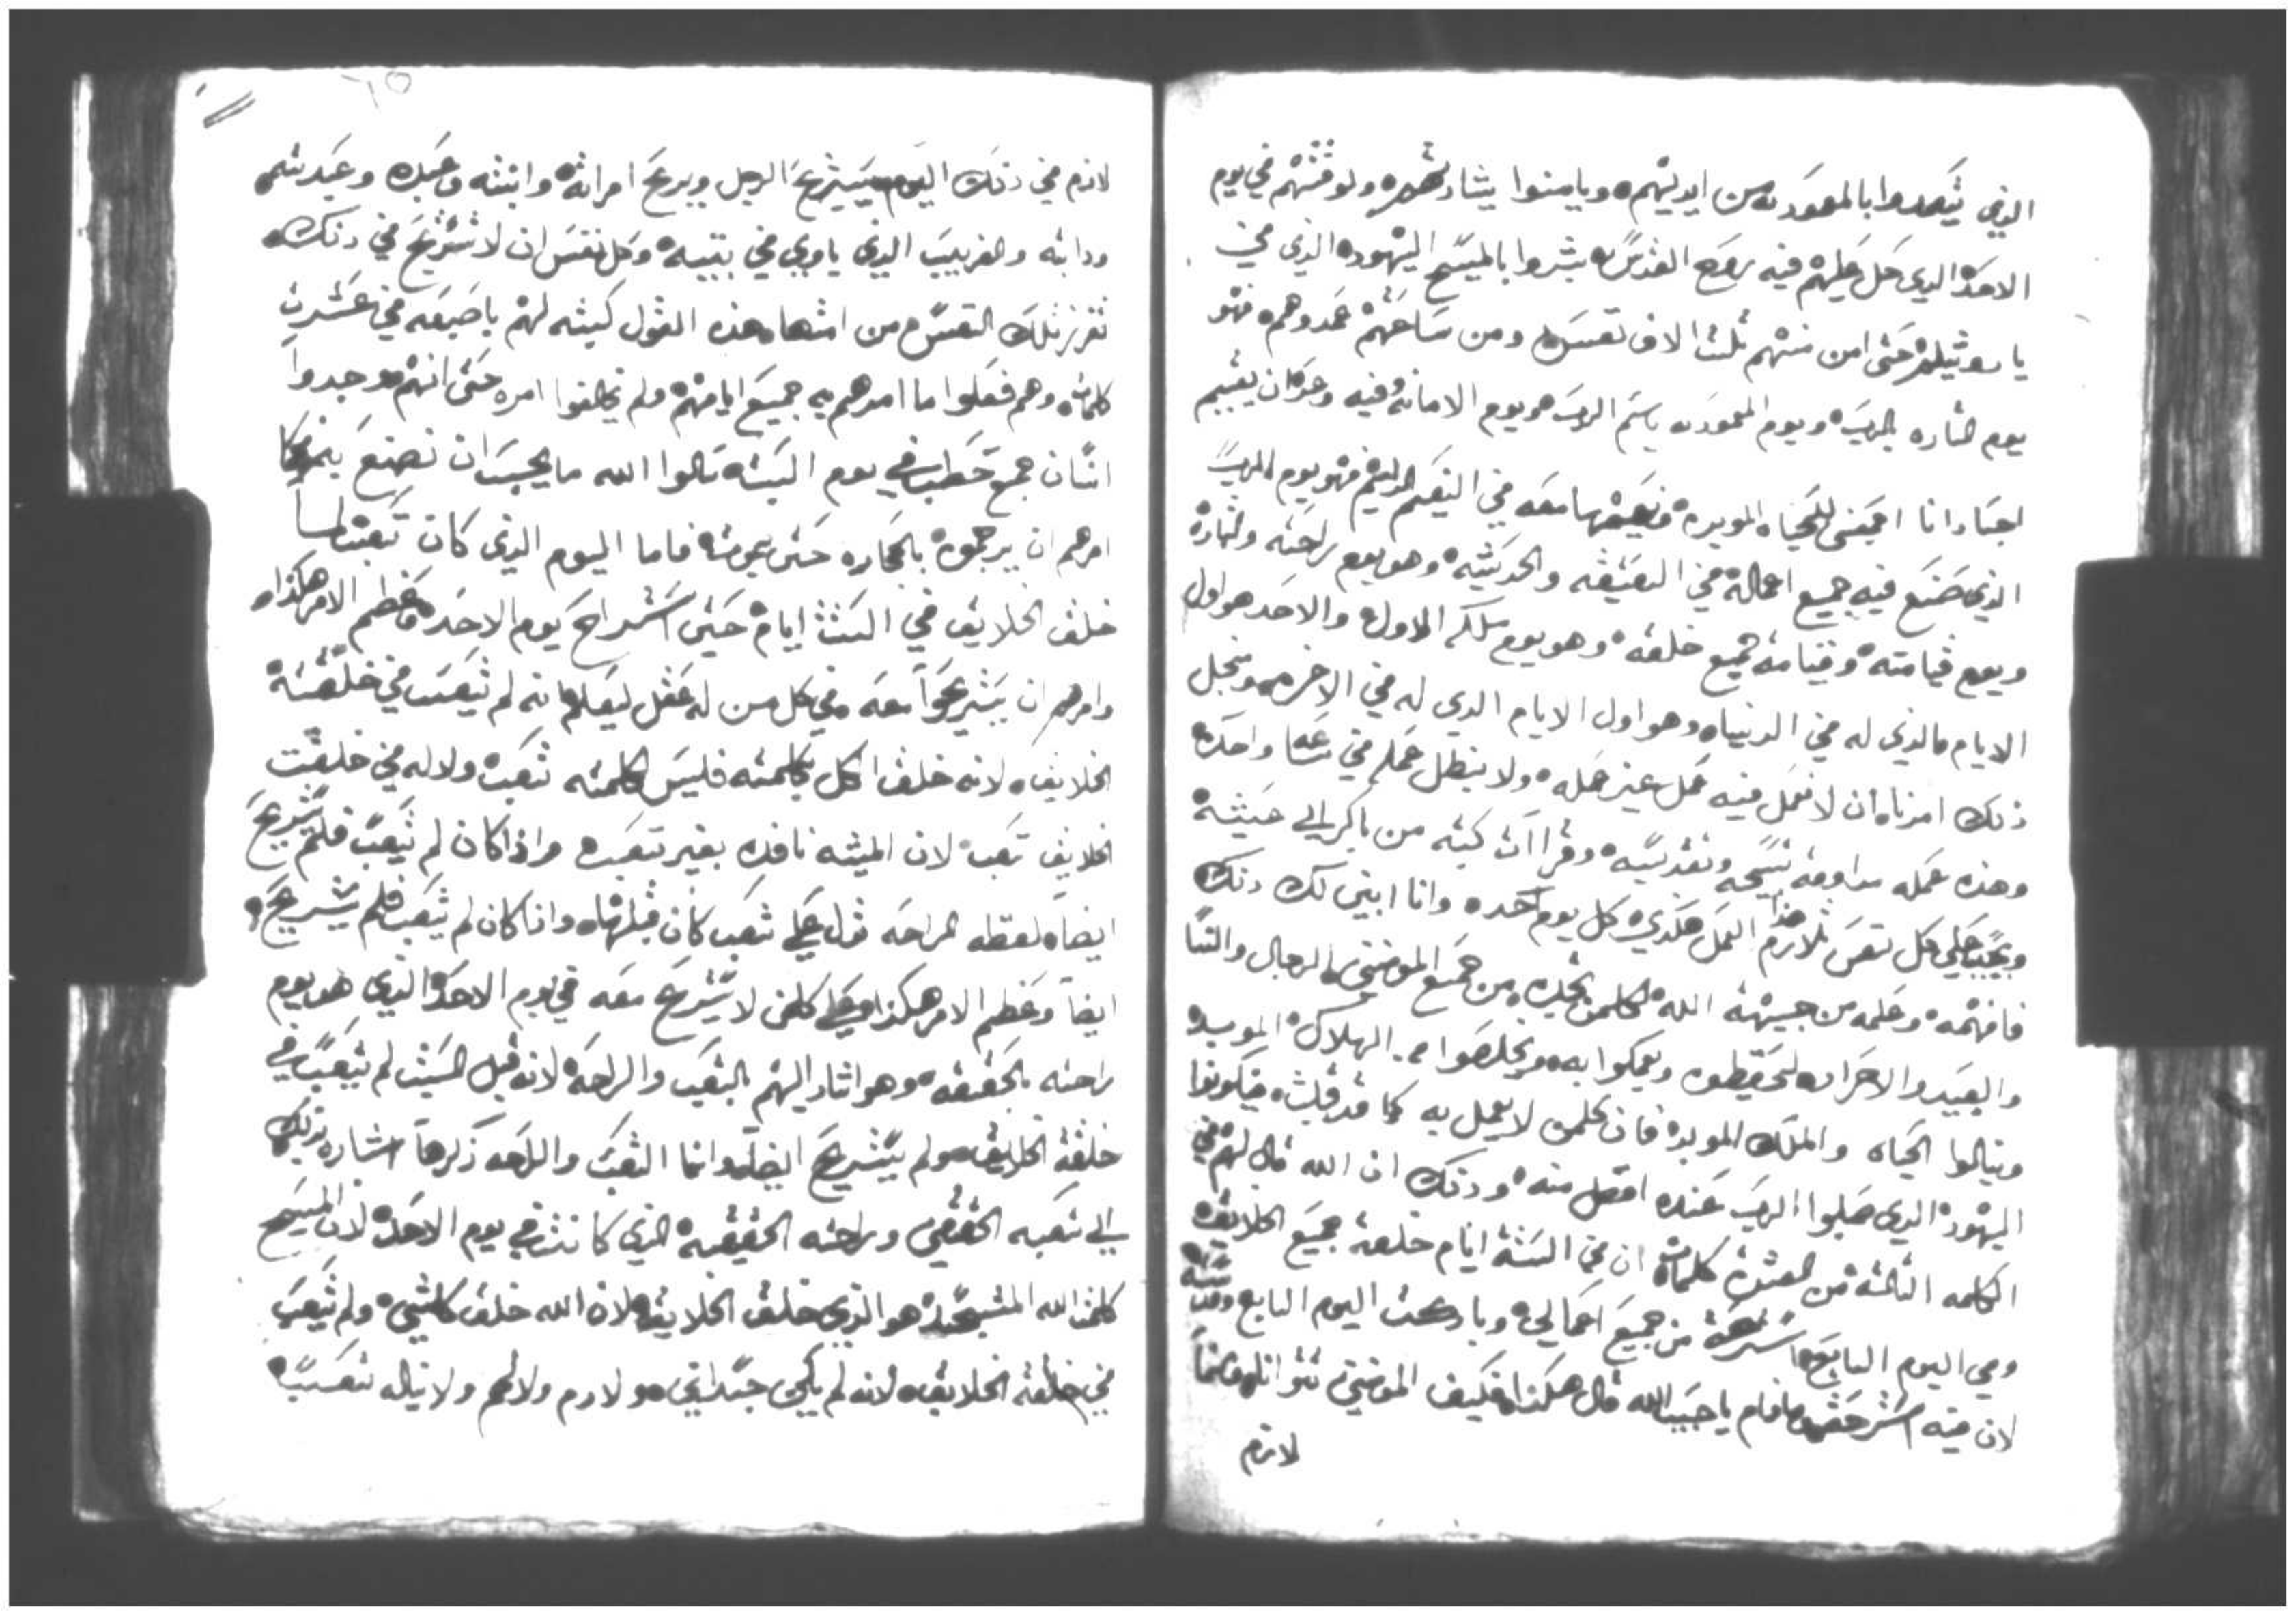 الذي يتعمدوا بالمعموديه من ايديهم ويامنوا ببشارتهم ولوقتهم في يوم
الاحد الذي حل عليهم فيه روح القدس بشروا بالمسيح اليهود الذي في
يا حتى امن منهم ثلث الاف نفس ومن ساعتهم عمدوهم فهو
يوم بشاره الرب ويوم المعموديه باسم الرب هو يوم الامانه فيه وهو كان يقيم
اجسادنا اجمعين للحياه المويده معه في النعيم الدايم فهو يوم الرب
الذي صنع فيه جميع اعماله في العتيقه والحديثه وهو يوم راحته وبشارة
ويوم قيامته وقيامة جميع خلقه وهو يوم الاول والاحد هو اول
الايام الذي له في الدنيا وهو اول الايام الذي له في الاخره ومن اجل
ذلك امرنا ان لا نعمل فيه عمل غير عمله ولا نبطل عمله في ساعه واحده
وهذه عمله مداومة تسبيحه وتقديسه وقراات كتبه من باكر الي عشيته
ويجب علي كل نفس تلازم هذا العمل هكذي كل يوم احد وانا ابين لك ذلك
فافهمه وعلمه من جهة الله لكلمن تجده من جميع المومنين الرجال والنسا
والعبيد والاحرار ليحفظوه ويعملوا به ويخلصوا من الهلاك الموبده
وينالوا الحياه والملك الموبده فان كلمن لا يعمل به كما قد قلت فيكونوا
اليهود الذي صلبوا الرب عنده افضل منه وذلك ان الله قال لهم في
الكلمه الثالثة من العشرة كلمات ان في الستة ايام خلقة جميع الخلايق
وفي اليوم السابع استرحة من جميع اعمالي وباركت اليوم السابع وقدسته
لان فيه استرحت فافهم يا حبيب الله قال هكذا فكيف المومنين
لازم
لازم في ذلك اليوم يستريح الرجل ويريح امراته وابنته وعبده وعبدتهم
ودابته والغريب الذي ياوي في بيته وكل نفس ان لا تستريح في ذلك
تفرز تلك النفس من امتها هذه القول كتبه لهم باصبعه في عشرت
كلمات وهم فعلوا ما امرهم به جميع ايامهم ولم يخالفوا امره حتى انهم وجدوا
انسان جمع حطب في يوم السبت سالوا الله ما يجب ان نصنع به
امرهم ان يرجموه بالحجاره حتى يموت فاما اليوم الذي كان تعب
خلق الخلايق في الستت ايام حتى استراح يوم الاحد وعظم الامر هكذا
وامرهم ان يستريحوا معه في كل من له عقل ليعلم انه لم يتعب في خلقت
الخلايق لانه خلق الكل بكلمته فليس لكلمته تعب ولا له في خلقت
الخلايق تعب لان الميته نافده بغير تعب واذا كان لم يتعب فلم يستريح
ايضا لفظه الراحه تدل علي تعب كان قبلها واذا كان لم يتعب فلم يستريح
ايضا وعظم الامر هكذا علي كلمن لا يستريح معه في يوم الاحد الذي هو يوم
راحته بالحقيقه وهو اشار اليهم بالتعب والراحه لانه قبل السبت لم يتعب في
خلقة الخلايق ولم يستريح ايضا وانما التعب والراحه ذكرها اشاره بذلك
الي تعبه الحقيقي وراحته الحقيقيه الذي كانت في يوم الاحد لان المسيح
كلمت الله المتجسد هو الذي خلق الخلايق لان الله خلق كلشي ولم يتعب
في خلقة الخلايق لانه لم يكن جسداني ولا دم ولا لحم ولا يناله تعب